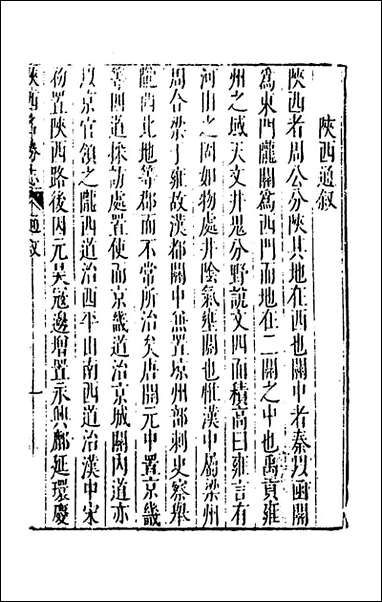 陝西通叙
陝西者周公分陝其地在西也關中者秦以函關
爲東門隴關爲西門而地在二關之中也禹貢雍
州之域天文井鬼分野說文四面積高曰雍言有
河山之固如物處井陰氣壅閼也惟漢中屬梁州
周合梁于雍故漢都關中無置京州部刺史察舉
隴西北地等郡而不常所治矣唐開元中置京畿
等四道採訪處置使而京畿道治京城關内道亦
以京官領之隴西道治西平山南西道治漢中宋
初置陝西路後因元昊寇邊增置永興鄜延環慶
陝西名勝志 通叙 一